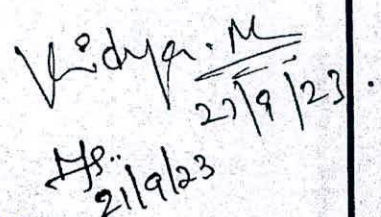 Vidya.M
27/9/23.
21/9/23